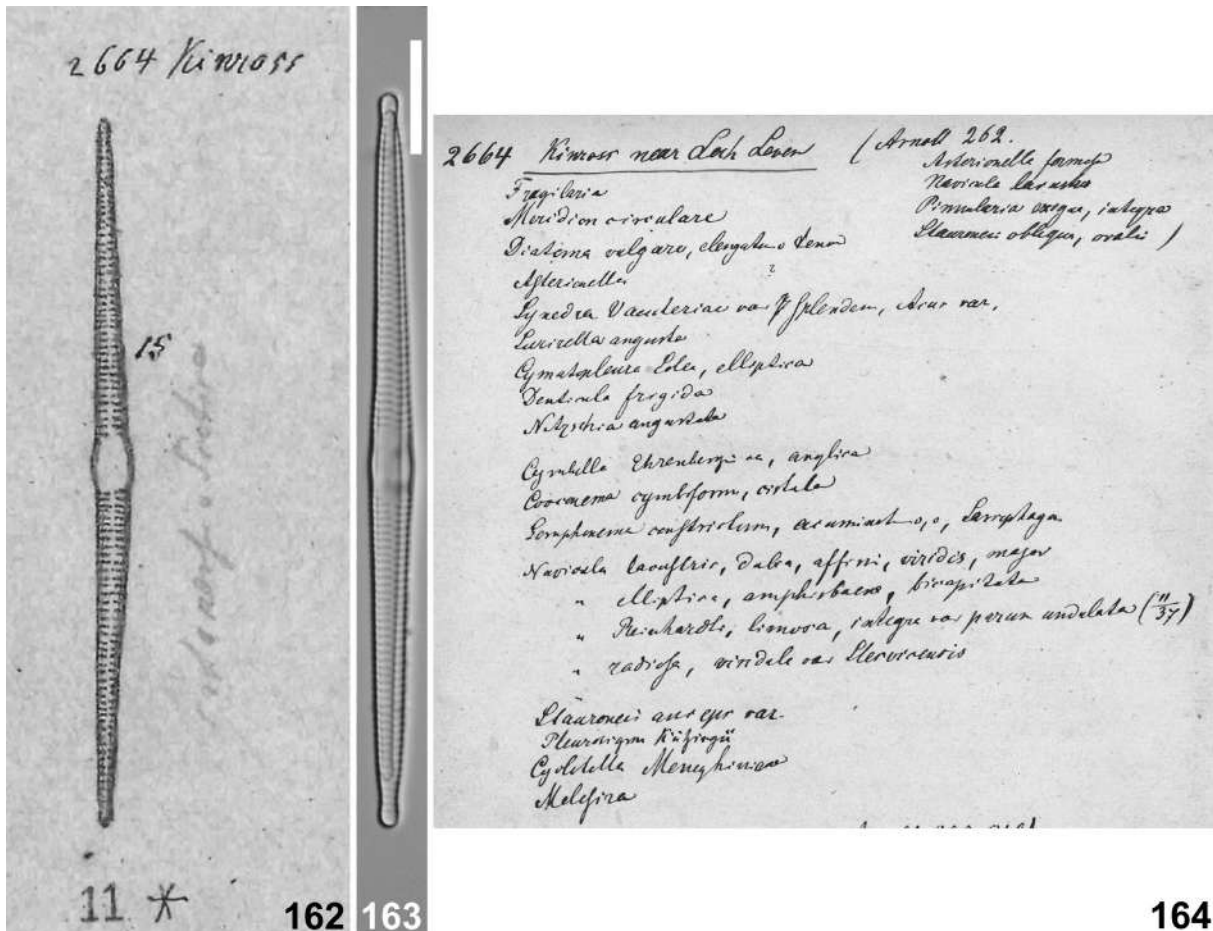 2664 Kinross
15
11 *
162
163
2664 Kinross near Loch Leven
(Arnott 262.
Asterionella formosa
Navicula lacustris
Pinnularia exigua, integra
Stauroneis obliqua, ovalis)
Fragilaria
Meridion circulare
Diatoma vulgare, elongatum tenue
Asterionella
?
Synedra Vaucheriae var splendens, Acus var.
Surirella angusta
Cymatopleura Solea, elliptica
Denticula frigida
Nitzschia angustata
Cymbella Ehrenbergii, anglica
Cocconema cymbiforme, cistula
Gomphonema constrictum, acuminatum,
Navicula lacustris, dubia, affinis, viridis, major
" elliptica, amphisbaena, bicapitata
" Reinhardti, limosa, integra var parum undulata (11/37)
" radiosa, viridula var Slesvicensis
Stauroneis anceps var.
Pleurosigma Kützingii
Cyclotella Meneghiniana
Melosira
164